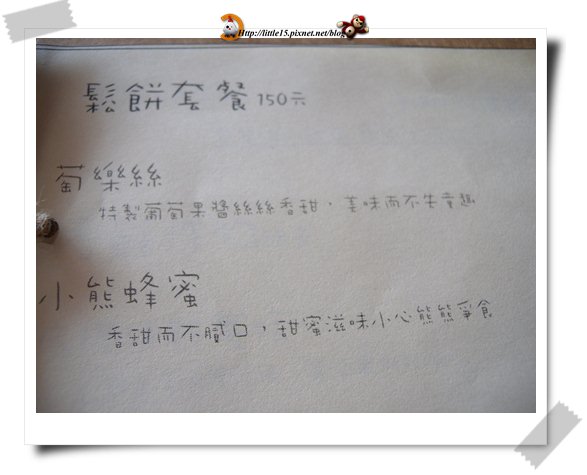 Http://little15.pixnet.net/blog
鬆餅套餐 150元
萄樂絲
特製葡萄果醬絲絲香甜，美味而不失童趣
小熊蜂蜜
香甜而不膩口，甜蜜滋味小心熊熊爭食